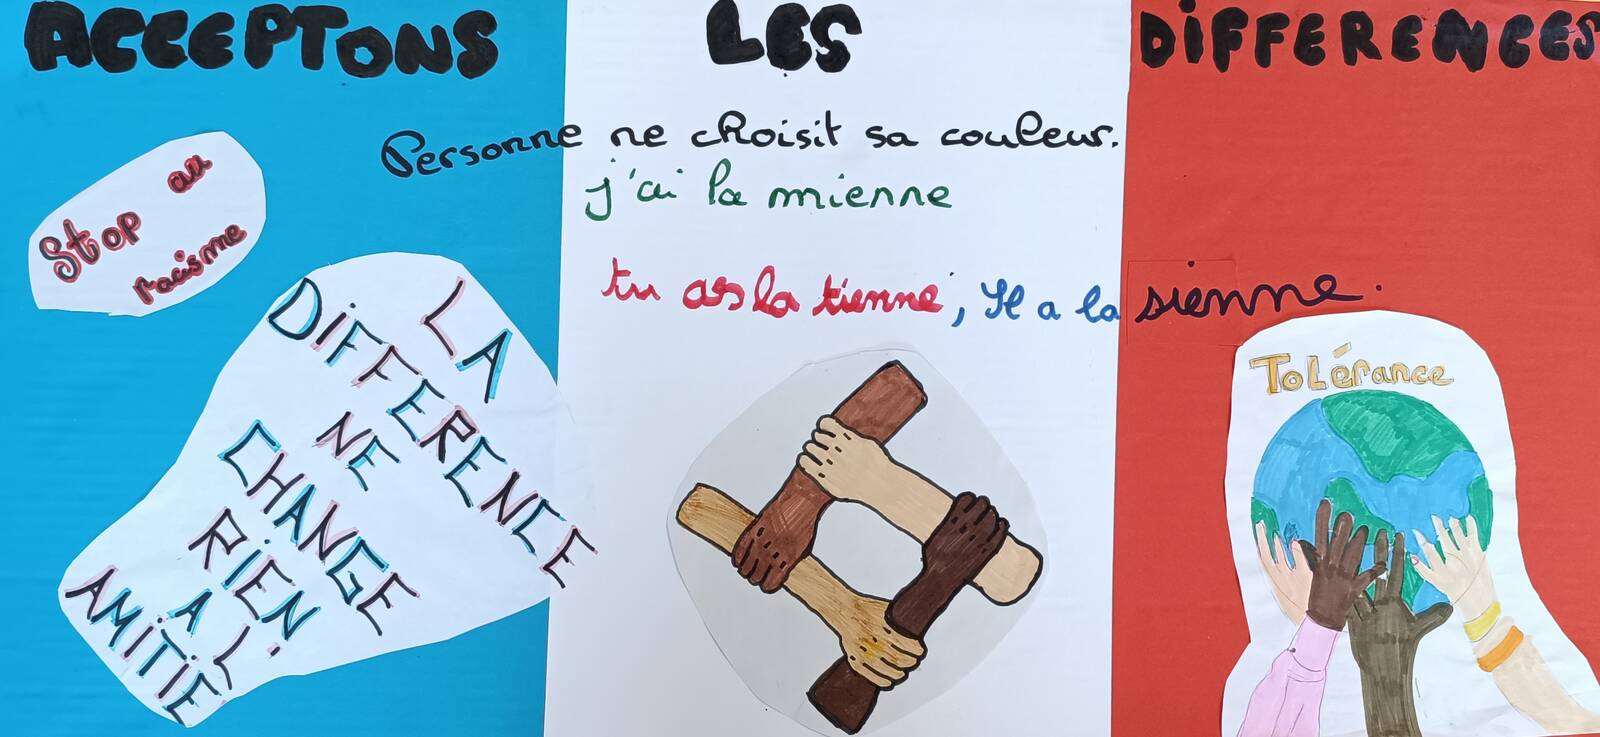 ACCEPTONS LES DIFFERENCES
Personne ne choisit sa couleur.
j'ai la mienne
tu as la tienne, Il a la sienne.
Stop au
racisme
LA
DIFFERENCE
NE
CHANGE
RIEN
A L'
AMITIE
Tolérance